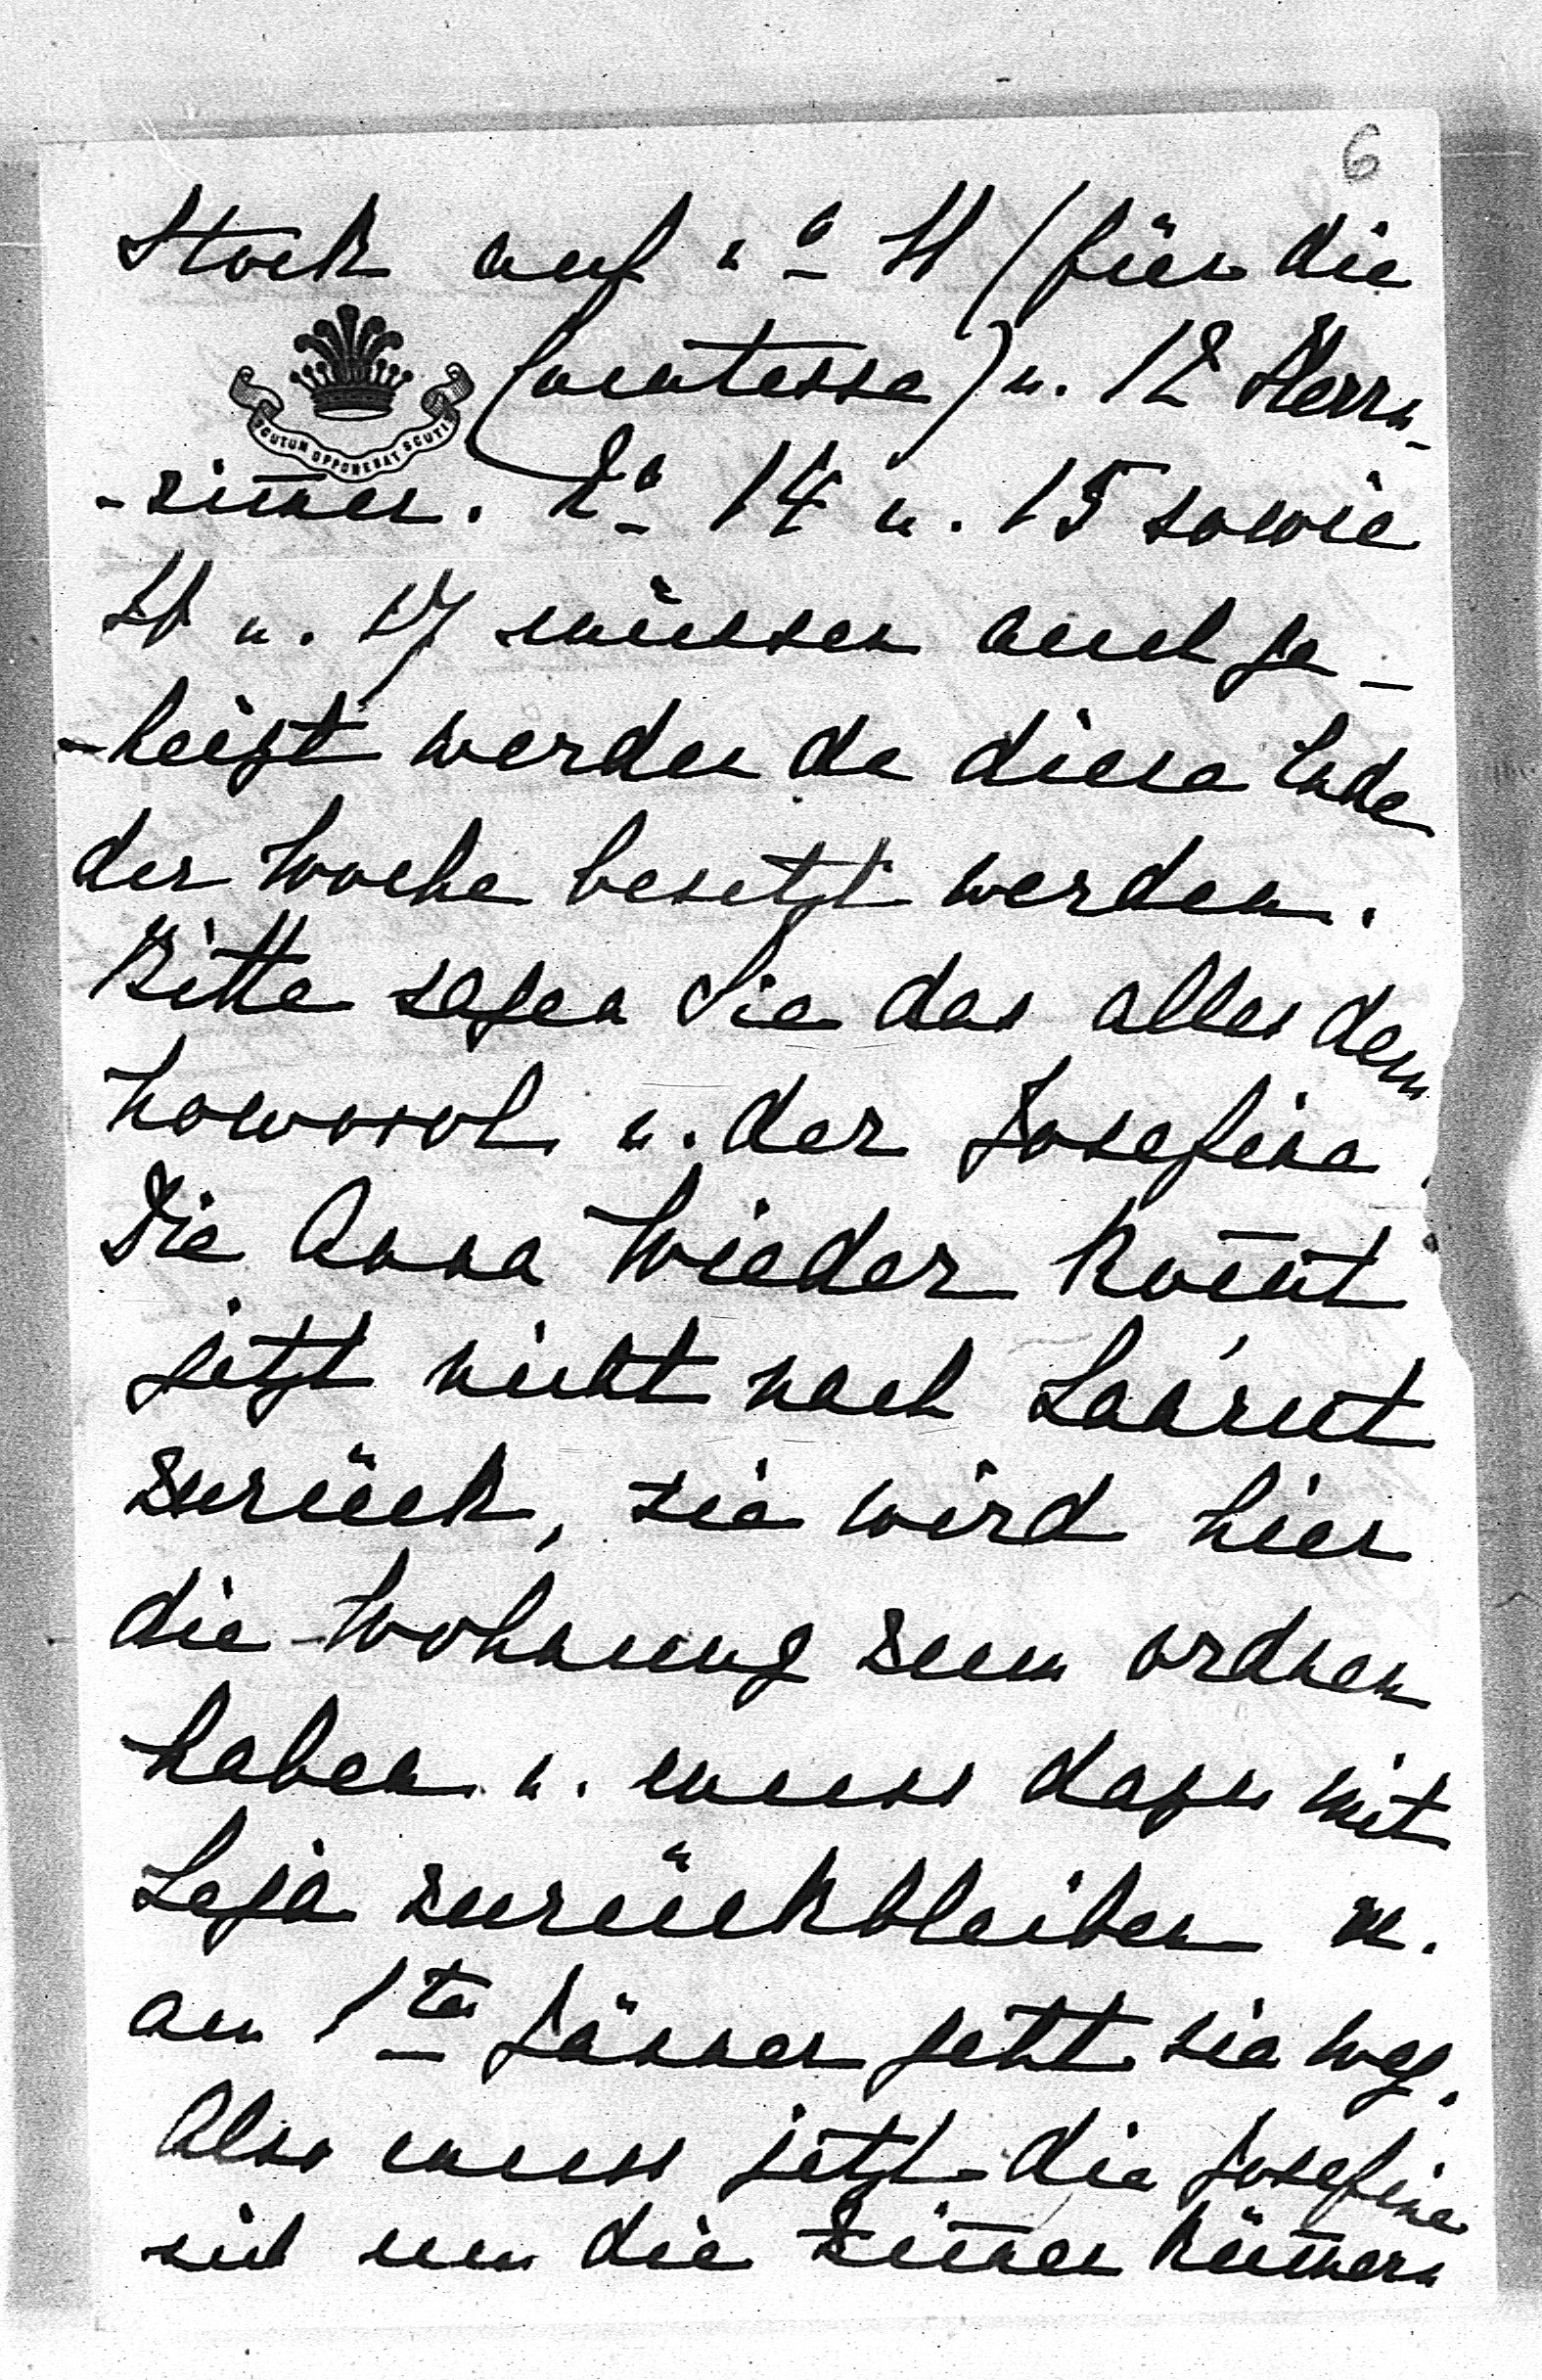 6
Stock auf No 11 (für die
SCUTUM OPPONEBAT SCUTI
Comtesse) u. 12 Herrn-
-zim̄er. No 14 u. 15 sowie
u. 17 müssen auch ge-
-heizt werden da diese Ende
der Woche besetzt werden.
Bitte sagen Sie das alles dem
u. der Josefine
Die Anna Wieder kom̄t
jetzt nicht nach
zurück, sie wird hier
die Wohnung zum ordnen
haben u. muss dazu mit
zurückbleiben u.
am 1ten Jänner geht sie weg.
Also muss jetzt die Josefine
sich um die Zim̄er küm̄ern